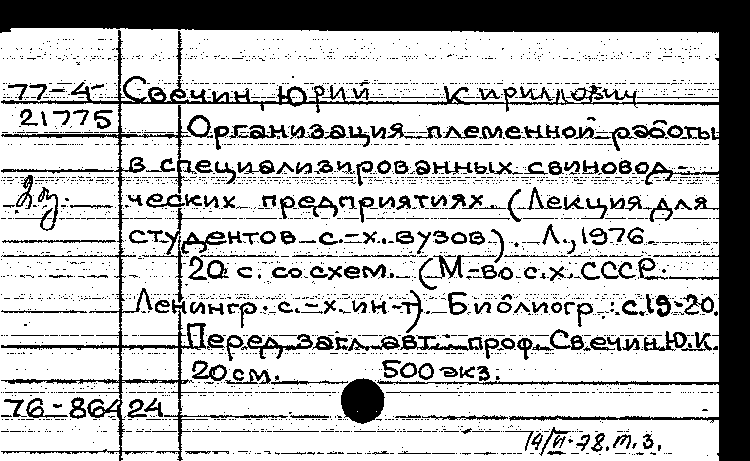 77-4 Свечин, Юрий Кириллович
21775 Организация племенной работы
в специализированных свиновод-
2 экз. ческих предприятиях. (Лекция для
студентов с.-х. вузов). Л., 1976.
20 с. со схем. (М-во с.х. СССР.
Ленингр. с.-х. ин-т). Библиогр.: с.19-20.
Перед загл. авт.: проф. Свечин Ю.К.
20 см. 500 экз.
76-86424
14/VI-78. т. 3.